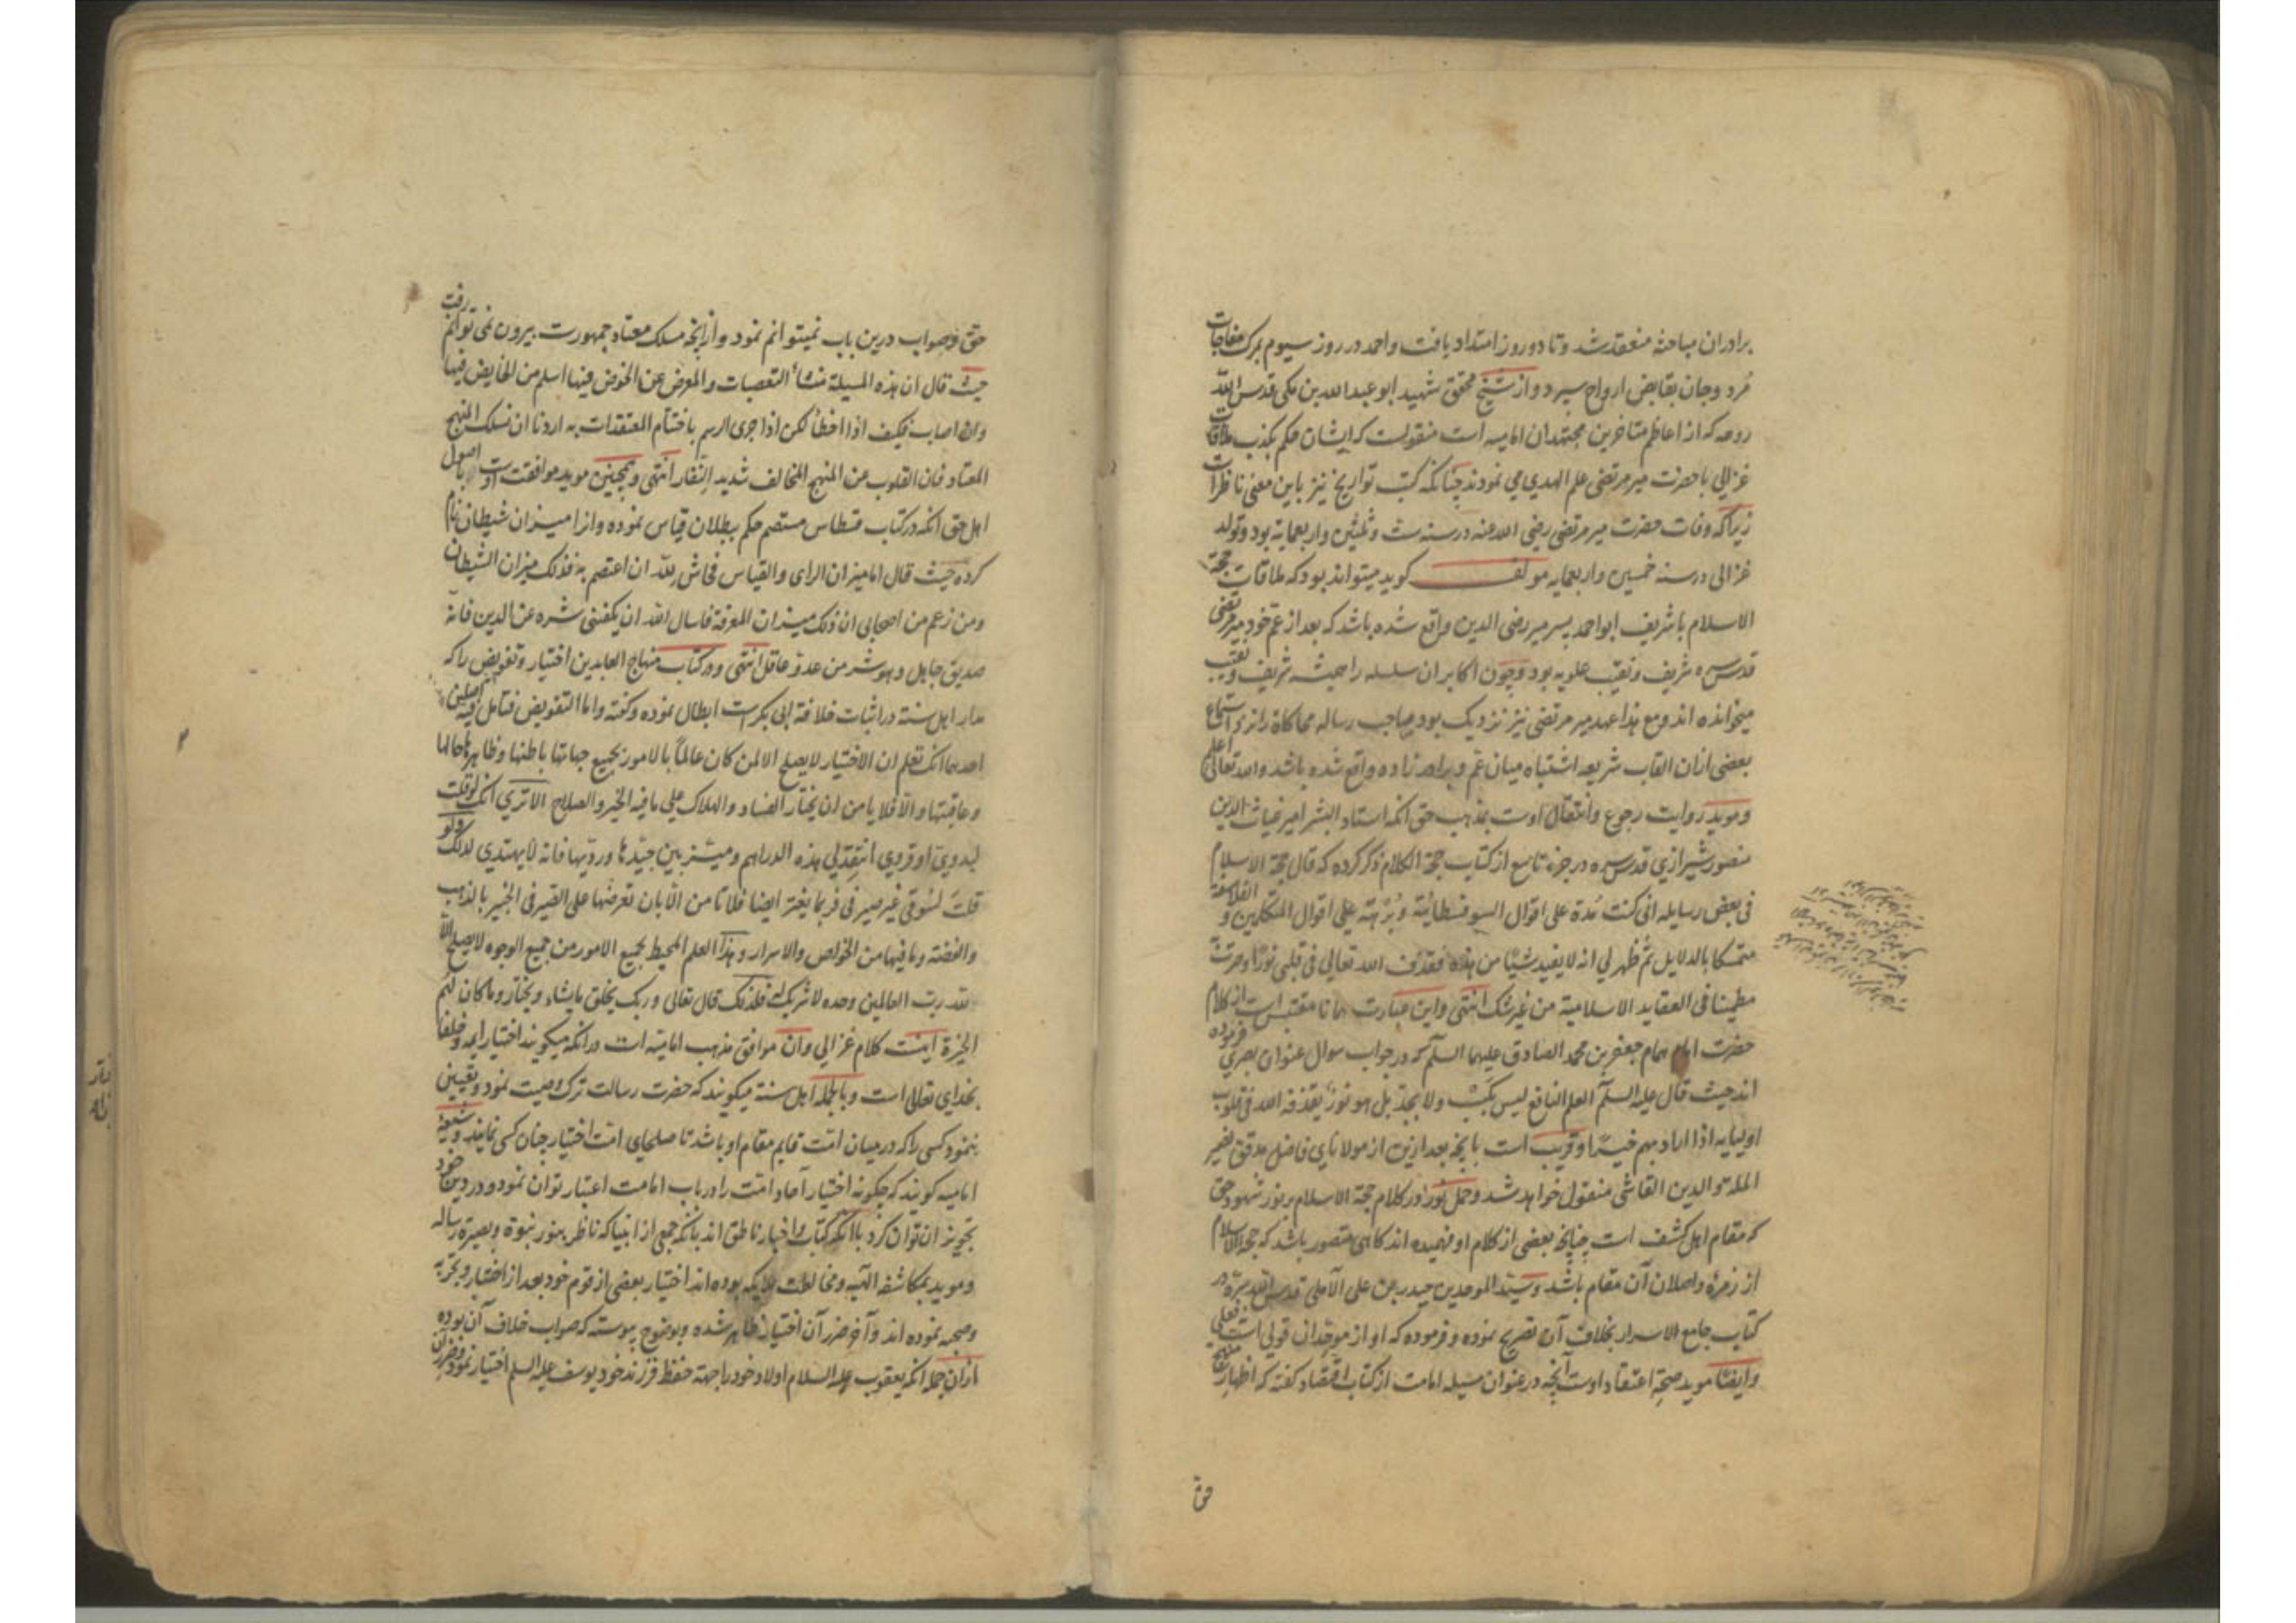 برادران مباحثه منعقد شد و تا دو روز امتداد یافت و احمد در روز سیوم بمرک مفاجات
مرد و جان بقابض ارواح سپرد و از شیخ محقق شهید ابو عبد الله بن مکی قدس الله
روحه که از اعاظم متاخرین مجتهدان امامیه است منقولست که ایشان حکم بکذب ملاقات
غزالی با حضرت میر مرتضی علم الهدی می نمودند چنانکه کتب تواریخ نیز باین معنی ناظرات
زیرا که وفات حضرت میر مرتضی رضی الله عنه در سنه ست و ثلثین و اربعمایه بود و تولد
غزالی در سنه خمسین و اربعمایه مولف کوید میتواند بود که ملاقات حجة
الاسلام با شریف ابو احمد پسر میر رضی الدین واقع شده باشد که بعد از عم خود میر مرتضی
قدس سره شریف و نقیب علویه بود و چون اکابر ان سلسله را همیشه شریف و نقیب
میخوانده اند و مع هذا عهد میر مرتضی نیز نزدیک بود صاحب رساله محاکاة را از استماع
بعضی ازان القاب شریعه اشتباه میان عم و برادر زاده واقع شده باشد والله تعالی اعلم
و موید روایت رجوع و انتقال اوست بمذهب حق انکه استاد البشر امیر غیاث الدین
منصور شیرازی قدس سره در جزء تاسع از کتاب حجة الکلام ذکر کرده که قال حجة الاسلام
فی بعض رسایله انی کنت مدة علی اقوال السوفسطائیة و برهة علی اقوال المتکلمین و الفلاسفة
متمسکا بالدلایل ثم ظهر لی انه لا یفید شیئا من هذه فقذف الله تعالی فی قلبی نورا و صرت
مطمینا فی العقاید الاسلامیة من غیر شک انتهی و این عبارت همانا مقتبس است از کلام
حضرت امام همام جعفر بن محمد الصادق علیهما السلم که در جواب سوال عنوان بصری فرموده
اند حیث قال علیه السلم العلم النافع لیس بکسب ولا بجد بل هو نور یقذفه الله فی قلوب
اولیایه اذا اراد بهم خیرا و قریب است بانچه بعد ازین از مولانای فاضل مدقق نصیر
المله والدین القاشی منقول خواهد شد و حمل نور در کلام حجة الاسلام بر نور شهود حق
که مقام اهل کشف است چنانچه بعضی از کلام او فهمیده اند کاهی متصور باشد که حجة الاسلام
از زمره واصلان آن مقام باشد و سید الموحدین حیدر بن علی الآملی قدس الله سره در
کتاب جامع الاسرار بخلاف آن تصریح نموده و فرموده که او از موحدان قولی است نه فعلی
و ایضا موید صحة اعتقاد اوست آنچه در عنوان مسیله امامت از کتاب اقتصاد کفته که اظهار
حق و صواب درین باب نمیتوانم نمود و ازانچه مسلک معتاد جمهورست بیرون نمی توانم رفت
حیث قال ان هذه المسیلة منشأ التعصبات والمعرض عن الخوض فیها اسلم من الخایض فیها
وان اصاب فکیف اذا اخطأ لکن اذا جری الرسم باختتام المعتقدات به اردنا ان نسلک المنهج
المعتاد فان القلوب عن المنهج المخالف شدید النفار انتهی و همچنین موید موافقت اوست با اصول
اهل حق انکه در کتاب قسطاس مستقیم حکم ببطلان قیاس نموده و انرا میزان شیطان نام
کرده حیث قال اما میزان الرای والقیاس فحاش لله ان اعتصم به فذلک میزان الشیطان
ومن زعم من اصحابی ان ذلک میزان المعرفة فاسال الله ان یکفینی شره عن الدین فانه
صدیق جاهل وهو شر من عدو عاقل انتهی و در کتاب منهاج العابدین اختیار و تفویض را که
مدار اهل سنة در اثبات خلافة ابی بکرست ابطال نموده و کفته و اما التفویض فتامل فیه اصلین
احدهما انک تعلم ان الاختیار لا یصلح الا لمن کان عالما بالامور بجمیع جهاتها باطنها و ظاهرها حالها
و عاقبتها والا فلا یامن ان یختار الفساد والهلاک علی ما فیه الخیر والصلاح الا تری انک لو قلت
لبدوی او قروی انتقد لی هذه الدراهم و میّز بین جیدها و ردیها فانه لا یهتدی لذلک ولو
قلت لسوقی غیر صیرفی فربما یعثر ایضا فلا تامن الا بان تعرضها علی الصیرفی الخبیر بالذهب
والفضة وما فیها من الخواص والاسرار و هذا العلم المحیط بجمیع الامور من جمیع الوجوه لا یصلح الا
لله رب العالمین وحده لا شریک له فلذلک قال تعالی و ربک یخلق ما یشاء و یختار و ما کان لهم
الخیرة اینست کلام غزالی و ان موافق مذهب امامیه است در انکه میکویند اختیار ایمه و خلفا
بخدای تعالی است و بالجمله اهل سنة میکویند که حضرت رسالت ترک وصیت نمود و تعیین
ننمود کسی را که در میان امت قایم مقام او باشد تا صلحای امت اختیار چنان کسی نمایند و شیعه
امامیه کویند که چکونه اختیار آحاد امت را در باب امامت اعتبار توان نمود و در دین خود
تجویز ان توان کرد با انکه کتاب و اخبار ناطق اند بانکه جمعی از انبیا که ناظر بنور نبوة و بصیرة رساله
و موید بمکاشفه الهیه و مخاطبت ملایکه بوده اند اختیار بعضی از قوم خود بعد از اختبار و تجربه
و صحبه نموده اند و آخر ضرر آن اختیار ظاهر شده و بوضوح پیوسته که صواب خلاف آن بوده
ازان جمله انکه یعقوب علیه السلام اولاد خود را جهة حفظ فرزند خود یوسف علیه السلم اختیار نمود و ضرر ان